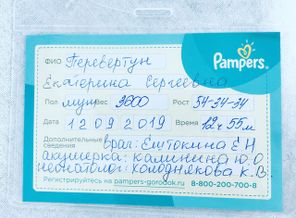 Pampers
ФИО Перевертун
Екатерина Сергеевна
Пол муж Вес 3600 Рост 54-34-34
Дата 12 09 2019 Время 12ч 55м
Дополнительные сведения врач: Ештокина Е Н
акушерка: Калинина Ю.О
неонатолог: Холоднякова К.В.
Регистрируйтесь на pampers-gorodok.ru 8-800-200-700-8